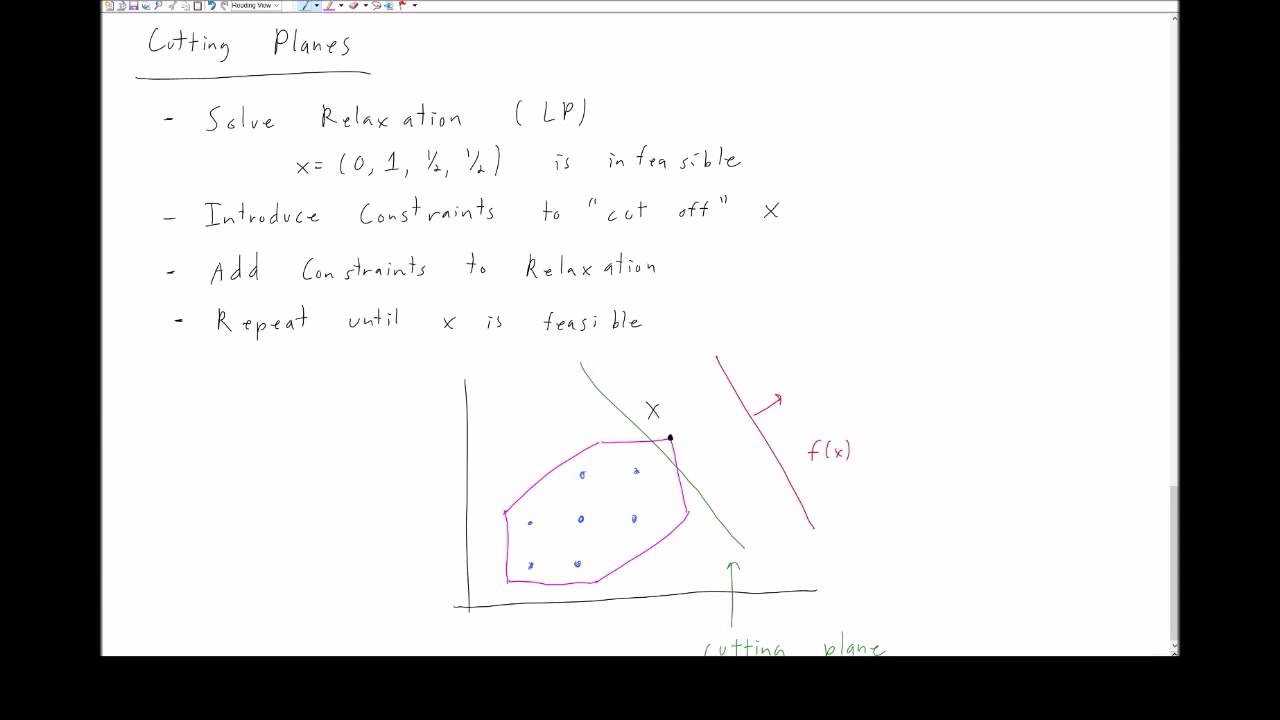 Reading View
Cutting Planes
- Solve Relaxation (LP)
x = (0, 1, ½, ½) is infeasible
- Introduce Constraints to "cut off" x
- Add Constraints to Relaxation
- Repeat until x is feasible
x
f(x)
cutting plane